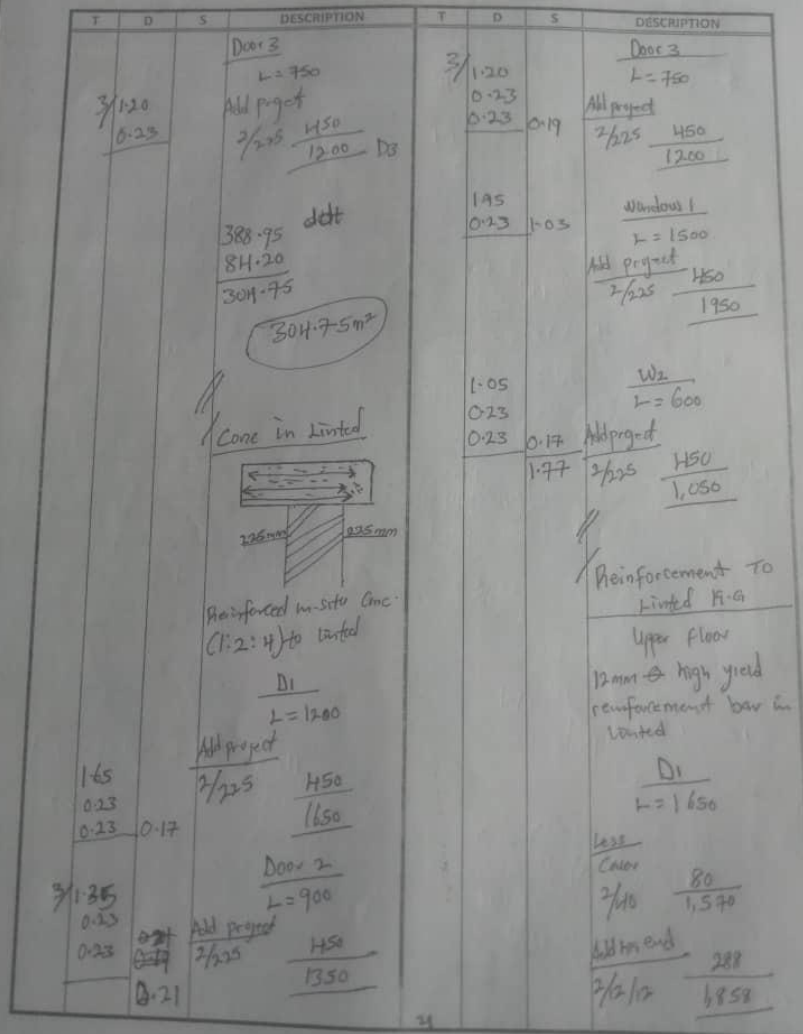 T D S DESCRIPTION
Door 3
L = 750
3/ 1.20 Add project
0.23 2/225 450
1200 D3
ddt
388.95
84.20
304.75
304.75m²
Conc in Linted
225mm 225mm
Reinforced in-situ Conc.
(1:2:4) to linted
D1
L = 1200
Add project
1.65 2/225 450
0.23 1650
0.23 0.17
Door 2
3/ 1.35 L = 900
0.23 Add project
0.23 2/225 450
0.21 1350
T D S DESCRIPTION
Door 3
3/ 1.20 L = 750
0.23 Add project
0.23 0.19 2/225 450
1200
1.95 Window 1
0.23 1.03 L = 1500
Add project
2/225 450
1950
1.05 W2
0.23 L = 600
0.23 0.17 Add project
1.77 2/225 450
1,050
Reinforcement To
Linted
Upper Floor
12mm ϴ high yield
reinforcement bar in
Linted
D1
L = 1650
Less
Cover
2/40 80
1,570
Add end
288
2/12/12 1,858
21